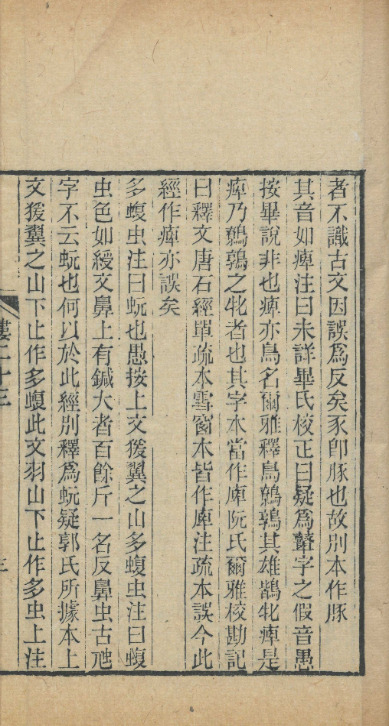 者不識古文因誤爲反矣豕卽豚也故別本作豚
其音如痺注曰未詳畢氏校正曰疑爲鼙字之假音愚
按畢說非也痺亦鳥名爾雅釋鳥鷯鶉其雄鶛牝痺是
痺乃鷯鶉之牝者也其字本當作庳阮氏爾雅校勘記
曰釋文唐石經單疏本雪窗本皆作庳注疏本誤今此
經作痺亦誤矣
多蝮虫注曰蚖也愚按上文猨翼之山多蝮虫注曰蝮
虫色如綬文鼻上有鍼大者百餘斤一名反鼻虫古虺
字不云蚖也何以於此經別釋爲蚖疑郭氏所據本上
文猨翼之山下止作多蝮此文羽山下止作多虫上注
樓二十三
三